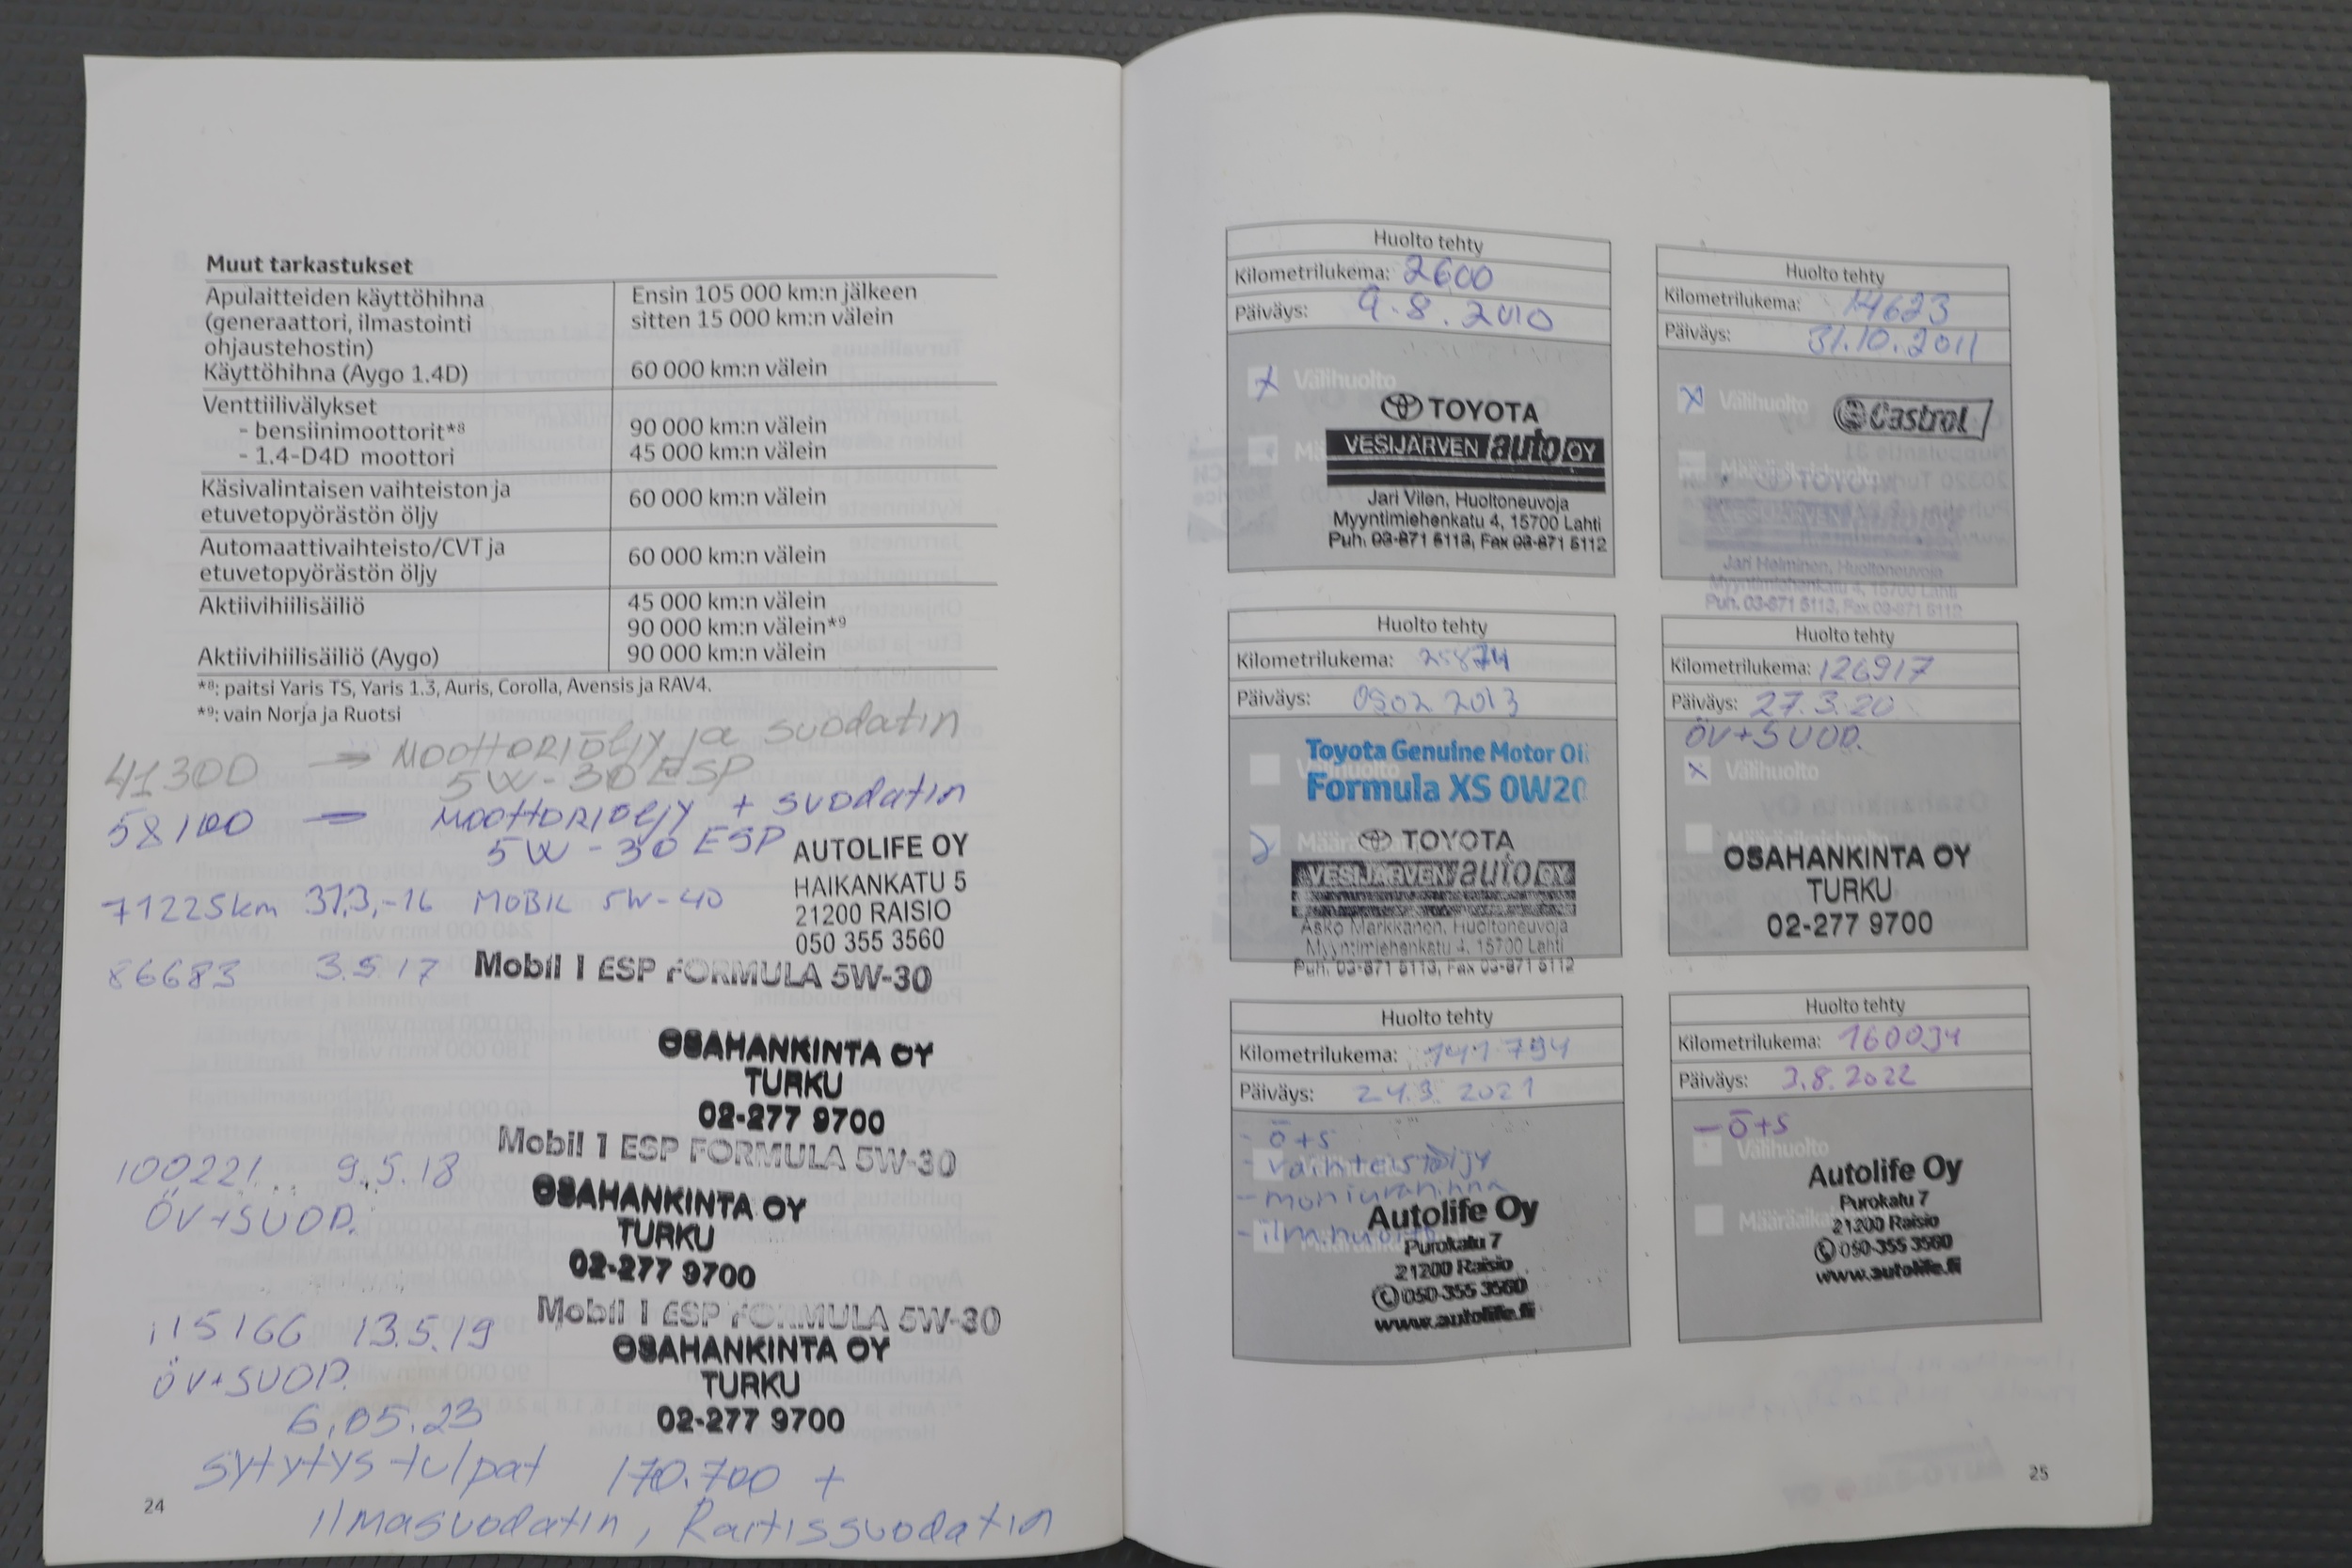 Muut tarkastukset
Apulaitteiden käyttöhihna
(generaattori, ilmastointi
ohjaustehostin)
Ensin 105 000 km:n jälkeen
sitten 15 000 km:n välein
Käyttöhihna (Aygo 1.4D)
60 000 km:n välein
Venttiilivälykset
- bensiinimoottorit*8
90 000 km:n välein
- 1.4-D4D moottori
45 000 km:n välein
Käsivalintaisen vaihteiston ja
etuvetopyörästön öljy
60 000 km:n välein
Automaattivaihteisto/CVT ja
etuvetopyörästön öljy
60 000 km:n välein
Aktiivihiilisäiliö
45 000 km:n välein
90 000 km:n välein*9
Aktiivihiilisäiliö (Aygo)
90 000 km:n välein
*8: paitsi Yaris TS, Yaris 1.3, Auris, Corolla, Avensis ja RAV4.
*9: vain Norja ja Ruotsi
41300 → MOOTTORIÖLJY ja suodatin
5W-30 ESP
58100 MOOTTORIÖLJY + suodatin
5W-30 ESP
AUTOLIFE OY
HAIKANKATU 5
21200 RAISIO
050 355 3560
71225km 31,3,-16 MOBIL 5W-40
86683 3.5.17 Mobil 1 ESP FORMULA 5W-30
OSAHANKINTA OY
TURKU
02-277 9700
Mobil 1 ESP FORMULA 5W-30
100221... 9.5.18
ÖV+SUOD.
OSAHANKINTA OY
TURKU
02-277 9700
Mobil 1 ESP FORMULA 5W-30
115166 13.5.19
ÖV+SUOD.
OSAHANKINTA OY
TURKU
02-277 9700
6.05.23
sytytystulpat 170.700 +
ilmasuodatin, Raitissuodatin
24
Huolto tehty
Kilometrilukema: 2600
Päiväys: 9.8.2010
x Välihuolto
TOYOTA
VESIJÄRVEN auto OY
Jari Vilen, Huoltoneuvoja
Myyntimiehenkatu 4, 15700 Lahti
Puh. 03-871 5113, Fax 03-871 5112
Huolto tehty
Kilometrilukema: 14623
Päiväys: 31.10.2011
x Välihuolto
Castrol
Määräaikaishuolto
TOYOTA
Jari Helminen, Huoltoneuvoja
Myyntimiehenkatu 4, 15700 Lahti
Puh. 03-871 5113, Fax 03-871 5112
Huolto tehty
Kilometrilukema: 25874
Päiväys: 0502 2013
Toyota Genuine Motor Oi
Formula XS 0W20
TOYOTA
VESIJÄRVEN auto OY
Asko Markkanen, Huoltoneuvoja
Myyntimiehenkatu 4, 15700 Lahti
Puh. 03-871 5113, Fax 03-871 5112
Huolto tehty
Kilometrilukema: 126917
Päiväys: 27.3.20
ÖV+SUOD.
x Välihuolto
Määräaikaishuolto
OSAHANKINTA OY
TURKU
02-277 9700
Huolto tehty
Kilometrilukema: 141.794
Päiväys: 24.3. 2021
- ö+s
- vaihteistöljy
- moniurahihna
- ilm.huolto
Autolife Oy
Purokatu 7
21200 Raisio
050-355 3560
www.autolife.fi
Huolto tehty
Kilometrilukema: 160094
Päiväys: 3.8.2022
- ö+s
Välihuolto
Autolife Oy
Purokatu 7
21200 Raisio
050-355 3560
www.autolife.fi
25